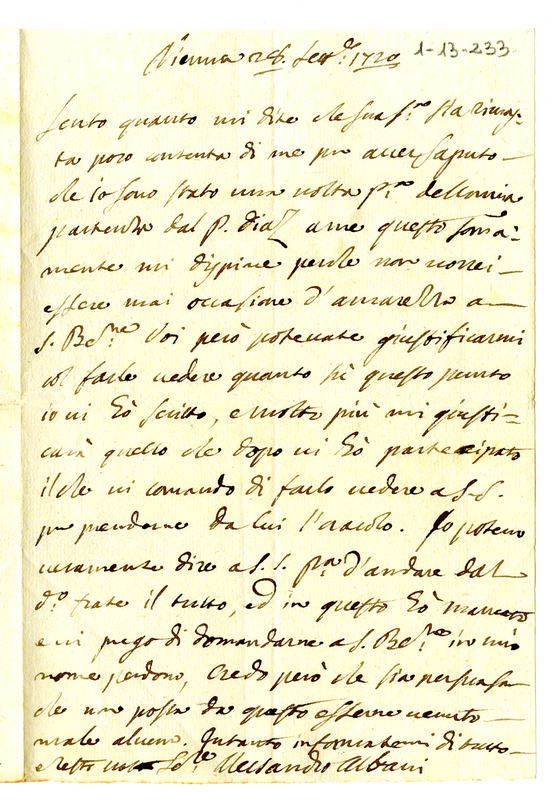 Vienna 28. Sett.e 1720
1-13-233
Sento quanto mi dite che Sua S.tà sia rimas-
ta poco contenta di me per aver saputo
che io sono stato una volta p.a della mia
partenza dal P. Diaz a me questo somma-
mente mi dispiace perche non vorrei
essere mai occasione d'amarezza a
S. Be.ne Voi però potevate giustificarmi
col farle vedere quanto sù questo punto
io vi hò scritto, e molto più mi giusti-
carà quello che dopo vi hò partecipato
il che vi comando di farlo vedere a S. S.
per prenderne da lui l'oracolo. Io potevo
veramente dire a S. S. p.a d'andare dal
d.o frate il tutto, ed in questo hò mancato
e vi prego di domandarne a S. Be.ne in mio
nome perdono, credo però che sia persuasa
che non possa da questo esserne venuto
male alcuno. Intanto informatemi di tutto
e resto Alessandro Albani